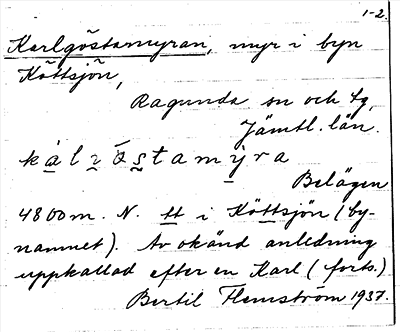 1-2.
Karlgöstamyran, myr i byn
Köttsjön,
Ragunda sn och tg,
Jämtl. län.
kálvö́stamỳra
Belägen
4800 m. N. tt i Köttsjön (by-
namnet). Av okänd anledning
uppkallad efter en Karl (forts.)
Bertil Flemström 1937.